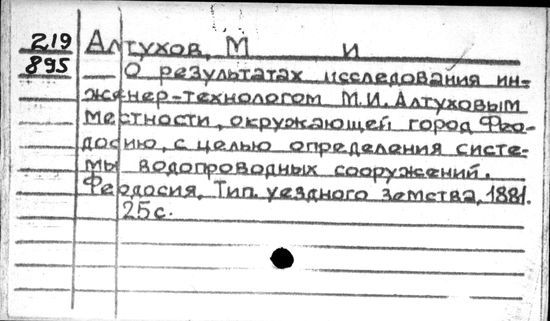 219 Алтухов, М И
895 О результатах исследования ин-
женер-технологом М.И. Алтуховым
местности, окружающей город Фео-
досию, с целью определения систе-
мы водопроводных сооружений.
Феодосия, Тип. уездного земства, 1881.
25 с.